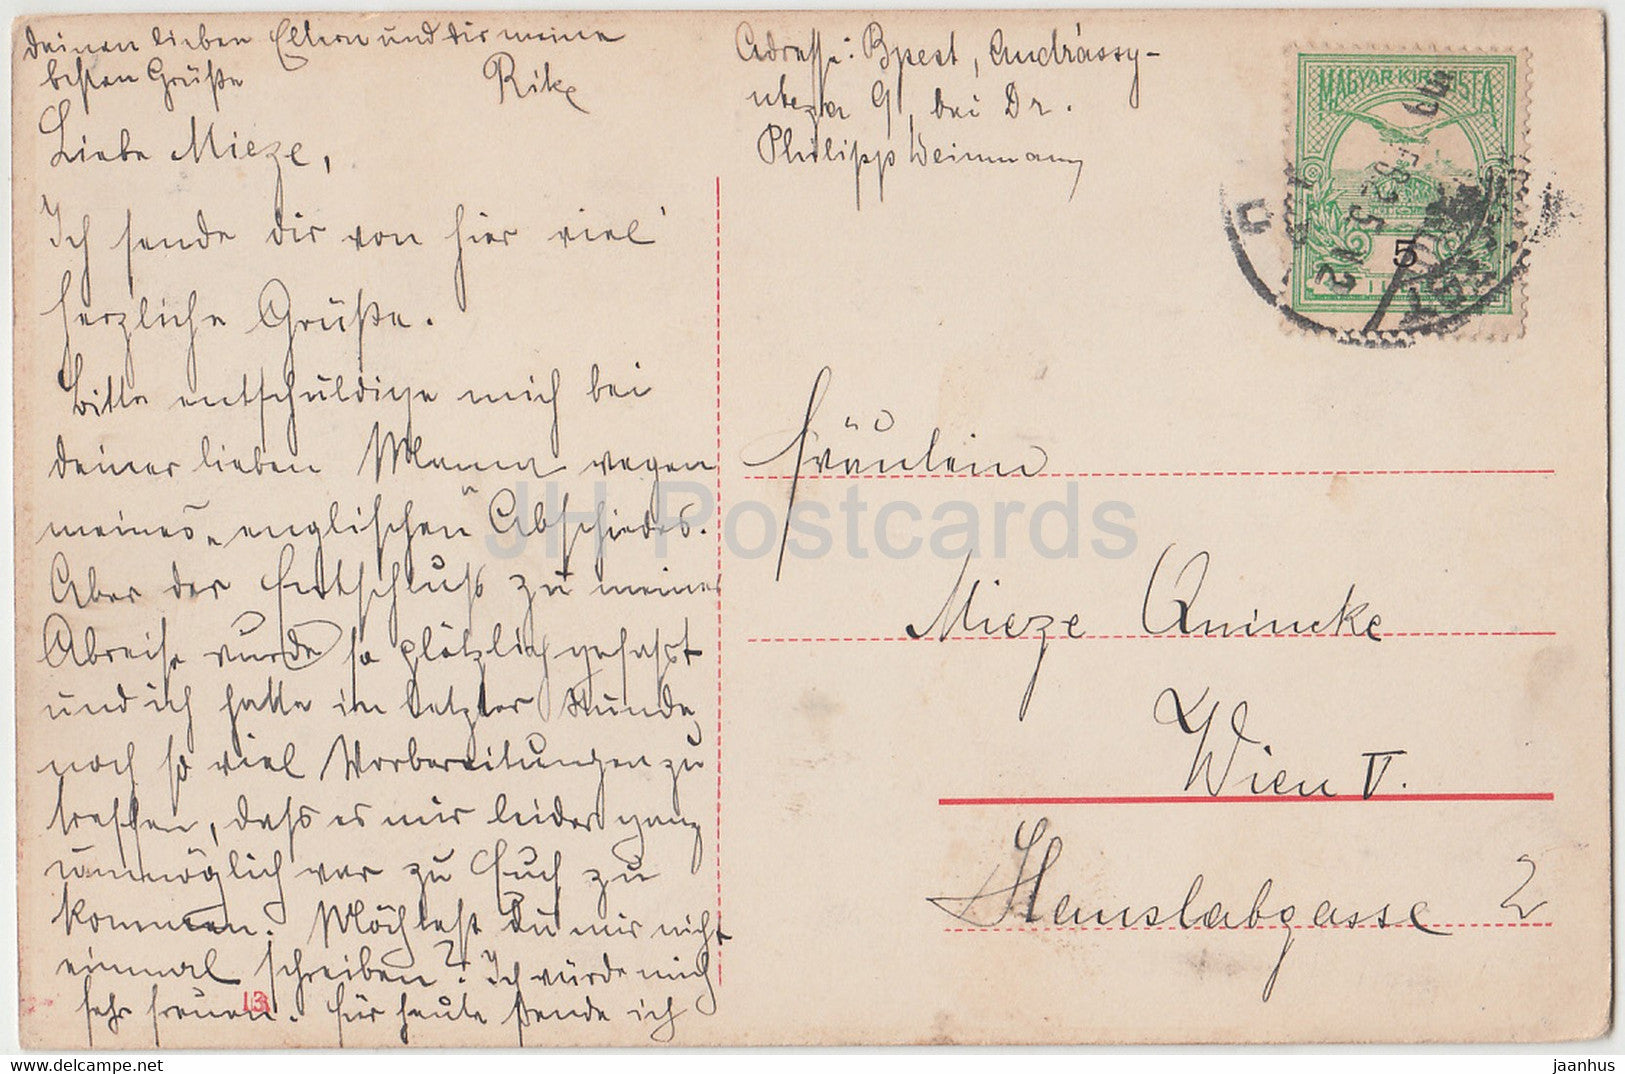 Liebe Mieze,
Ich sende dir von hier viel
herzliche Grüße.
Bitte entschuldige mich bei
deiner lieben Mama wegen
meines „englischen“ Abschiedes.
Aber der Entschluß zu meiner
Abreise wurde so plötzlich gefasst
und ich hatte in letzter Stunde
noch so viel Vorbereitungen zu
treffen, dass es mir leider ganz
unmöglich war zu Euch zu
kommen. Möchtest Du mir nicht
einmal schreiben? Ich würde mich
sehr freuen. Für heute sende ich
deinen lieben Eltern und dir meine
besten Grüße Rike
Adresse: Bpest, Andrássy-
utcza 9, bei Dr.
Philipp Weinmann
MAGYAR·KIR·POSTA
5
Fräulein
Mieze Quincke
Wien V.
Hamslabgasse 2
13
JH Postcards
www.delcampe.net
jaanhus